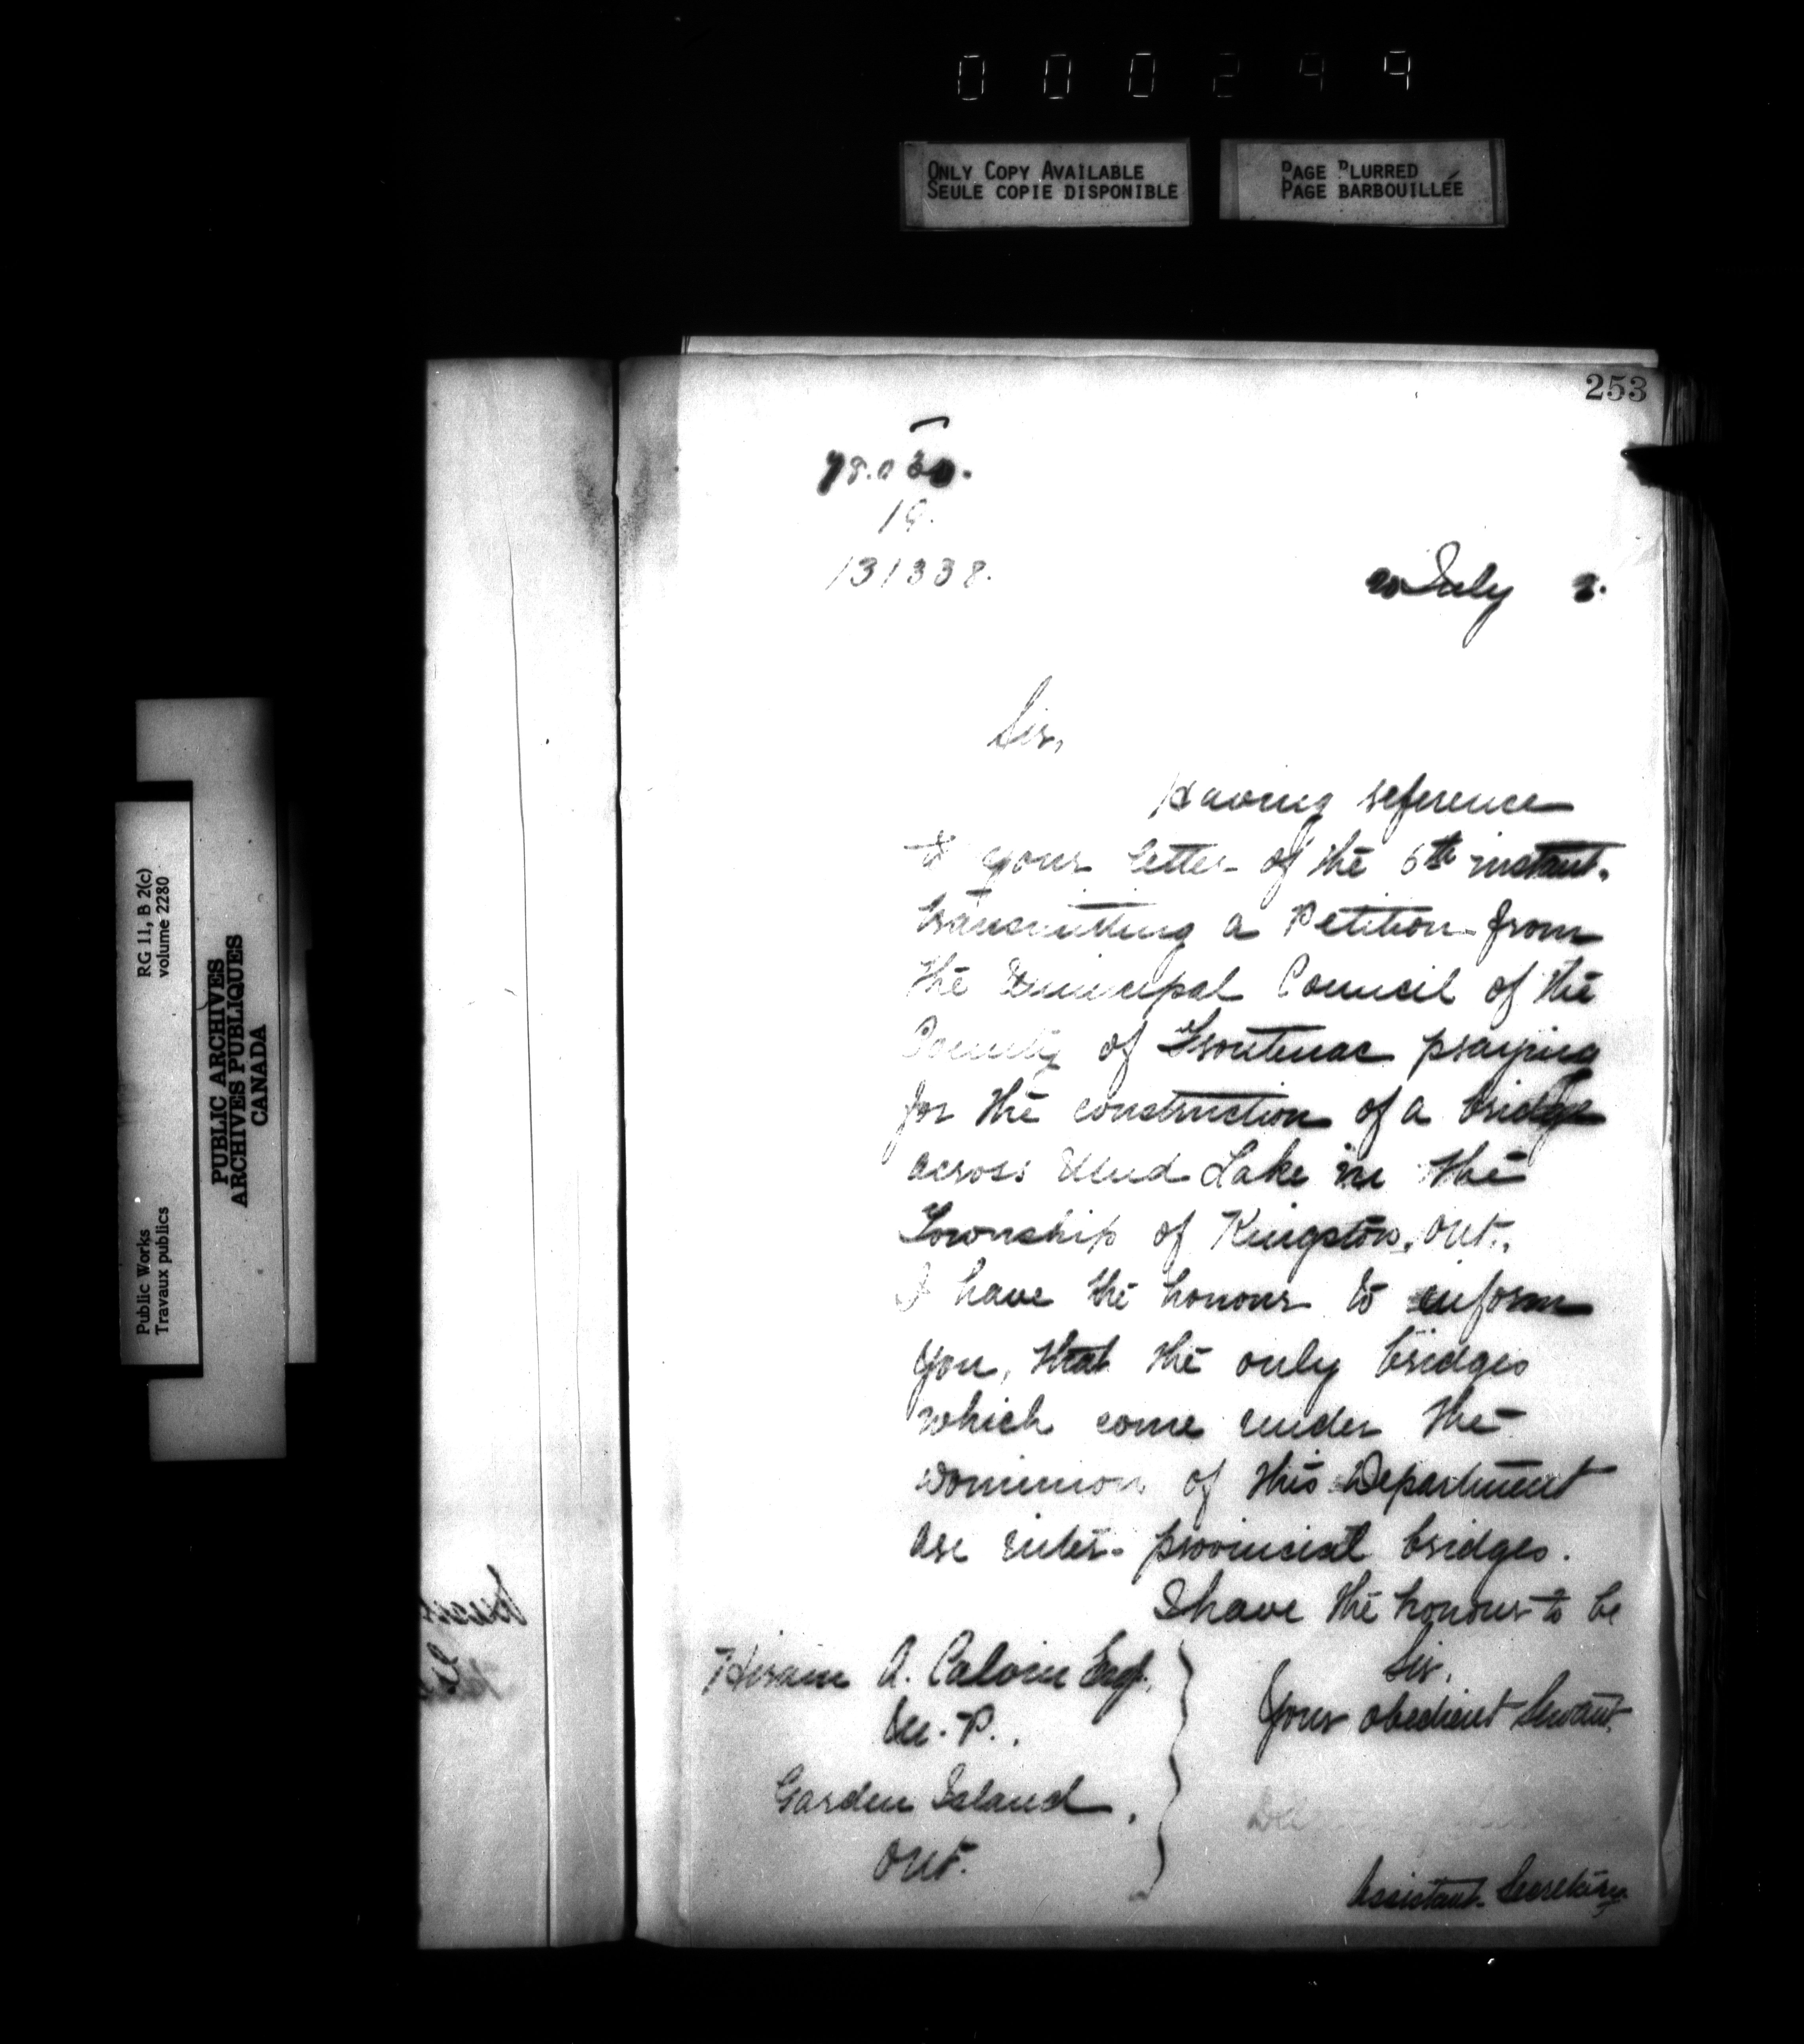 000299
ONLY COPY AVAILABLE
SEULE COPIE DISPONIBLE
PAGE BLURRED
PAGE BARBOUILLÉE
253
19.
131338.
20 July
Sir,
Having reference
to your letter of the 6th instant.
transmitting a Petition from
the Municipal Council of the
County of Frontenac praying
for the construction of a bridge
across Mud Lake in the
Township of Kingston, Ont.,
I have the honour to inform
you, that the only bridges
which come under the
Dominion of this Department
are inter-provincial bridges.
I have the honour to be
Sir,
Your obedient Servant.
Assistant Secretary
Hiram A. Calvin Esq.,
M.P.,
Garden Island,
Ont.
RG 11, B 2(c)
volume 2280
Public Works
Travaux publics
PUBLIC ARCHIVES
ARCHIVES PUBLIQUES
CANADA